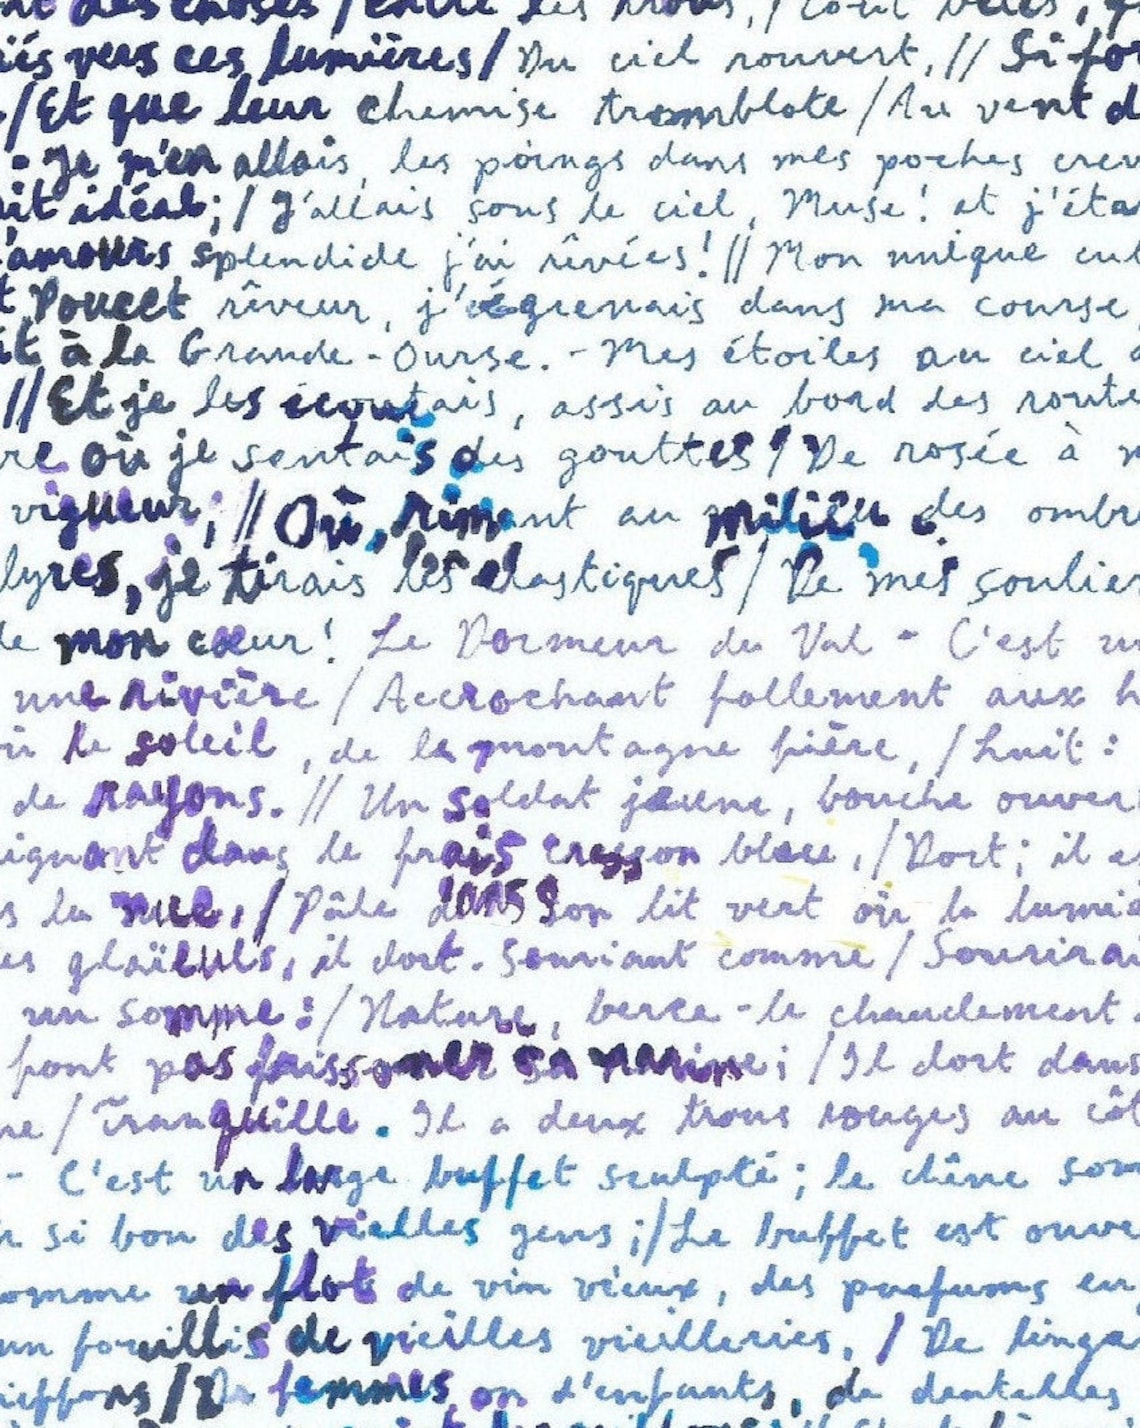 nt des choses / entre les trous, /
iés vers ces lumières / Du ciel rouvert, // Si for
/ Et que leur chemise tremblote / Au vent d
: Je m'en allais, les poings dans mes poches crev
ait idéal ; / J'allais sous le ciel, Muse ! et j'éta
'amours splendide j'ai rêvées ! // Mon unique cul
t Poucet rêveur, j'égrenais dans ma course
it à la Grande-Ourse. - Mes étoiles au ciel a
// Et je les écoutais, assis au bord des route
re où je sentais des gouttes / De rosée à m
vigueur ; // Où, rimant au milieu des ombre
lyres, je tirais les élastiques / De mes soulier
de mon cœur ! Le Dormeur du Val - C'est un
une rivière / Accrochant follement aux h
ù le soleil, de la montagne fière, / Luit :
de rayons. // Un soldat jeune, bouche ouver
ignant dans le frais cresson bleu, / Dort ; il e
s la nue, / Pâle dans son lit vert où la lumiè
es glaïeuls, il dort. Souriant comme / Sourirai
un somme : / Nature, berce-le chaudement
font pas frissonner sa narine ; / Il dort dans
ne / Tranquille. Il a deux trous rouges au côt
- C'est un large buffet sculpté ; le chêne som
r si bon des vieilles gens ; / Le buffet est ouve
omme un flot de vin vieux, des parfums en
un fouillis de vieilles vieilleries, / De linge
hiffons / De femmes ou d'enfants, de dentelles